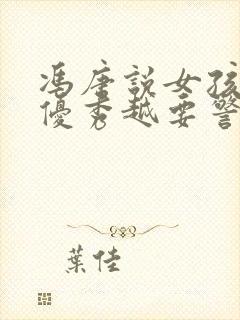 馮唐說女孩
優秀越要警
葉佳